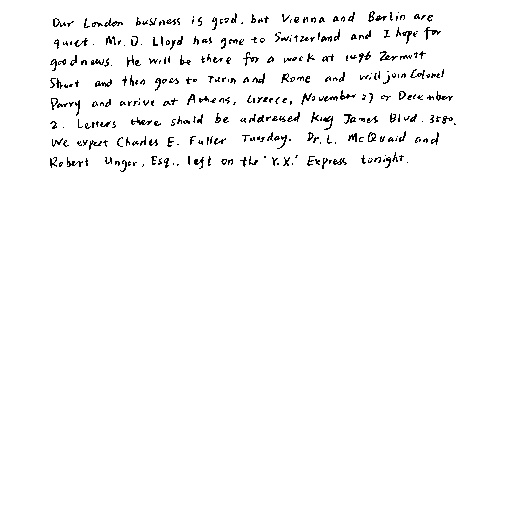 Our London business is good, but Vienna and Berlin are
quiet. Mr. D. Lloyd has gone to Switzerland and I hope for
good news. He will be there for a week at 1496 Zermott
Street and then goes to Turin and Rome and will join Colonel
Parry and arrive at Athens, Greece, November 27 or December
2. Letters there should be addressed King James Blvd. 3580.
We expect Charles E. Fuller Tuesday. Dr. L. McQuaid and
Robert Unger, Esq., left on the 'Y.X.' Express tonight.